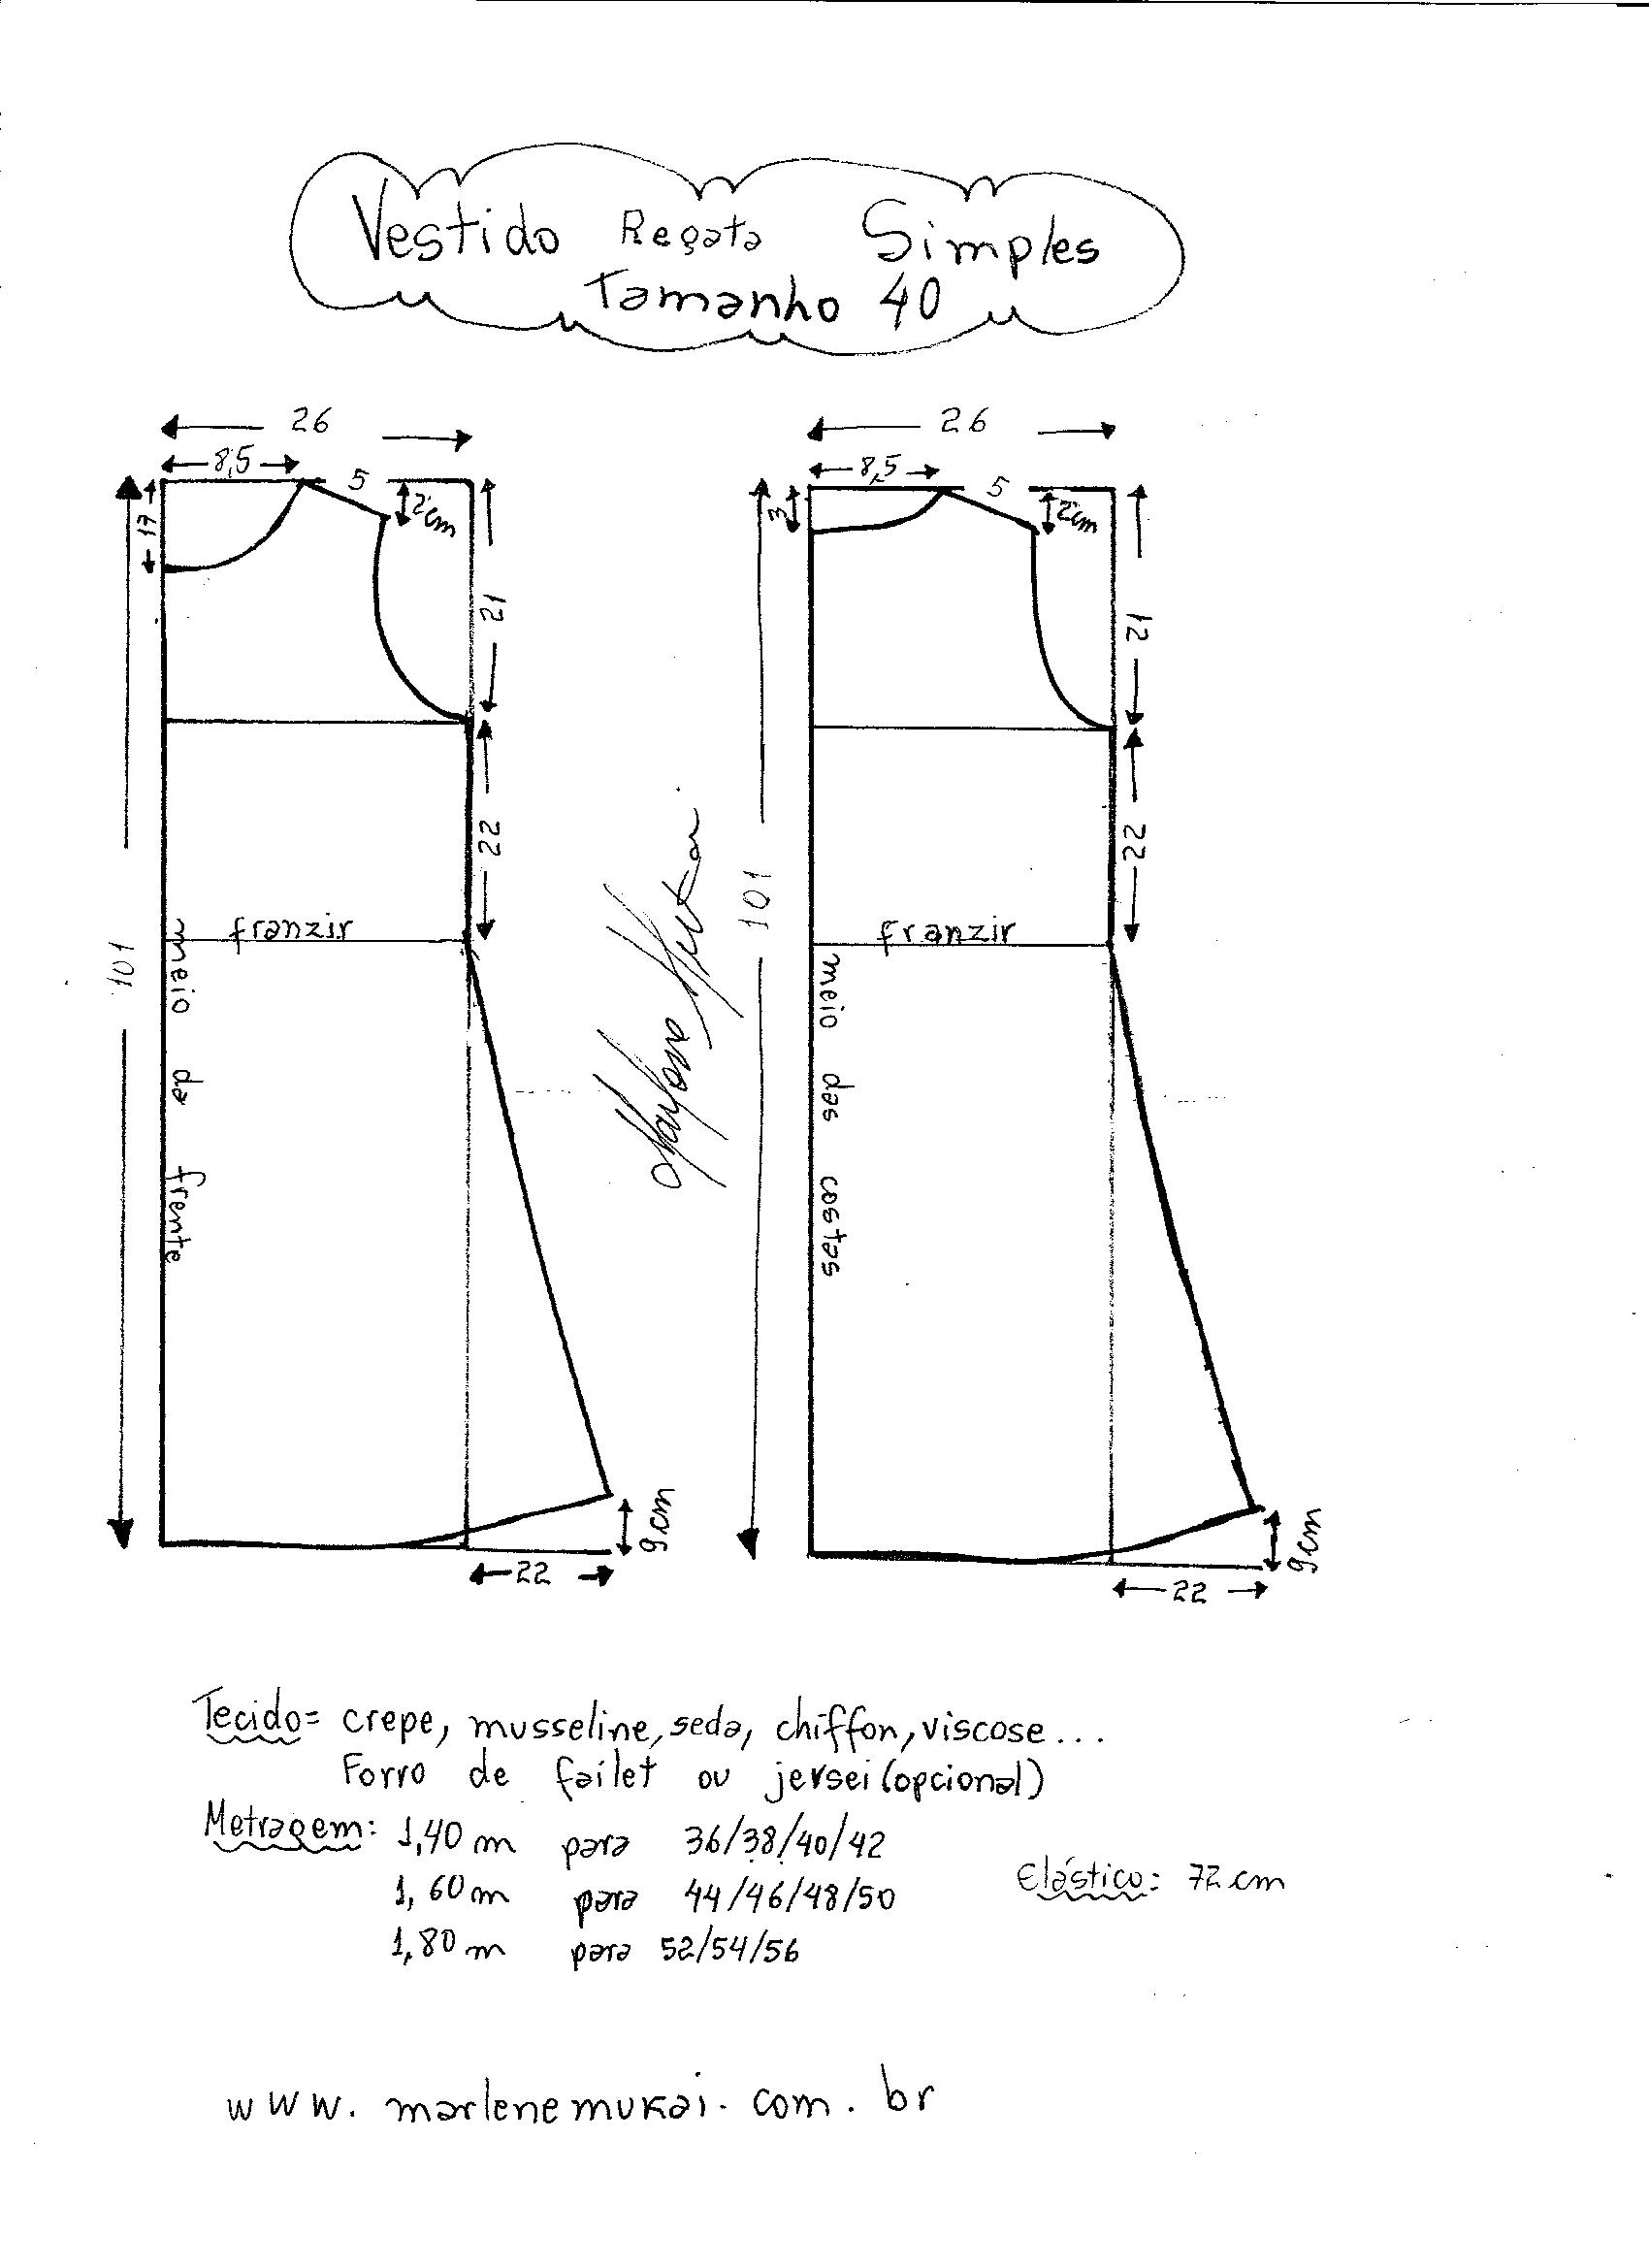 Vestido Regata Simples
Tamanho 40
26
8,5
5
2cm
17
21
22
101
franzir
meio da frente
9cm
22
26
8,5
5
2cm
3
21
22
101
franzir
meio das costas
9cm
22
Tecido= crepe, musseline, seda, chiffon, viscose...
Forro de failet ou jersei (opcional)
Metragem: 1,40m para 36/38/40/42
1,60m para 44/46/48/50
Elástico: 72 cm
1,80m para 52/54/56
www.marlenemukai.com.br